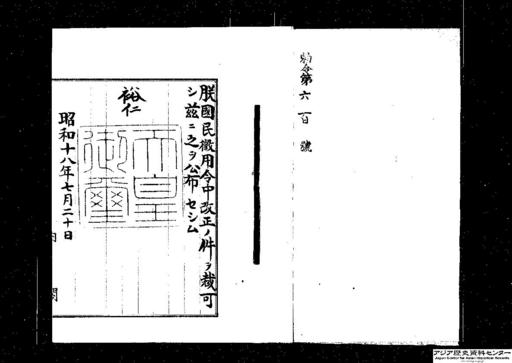 勅令第六百號
朕國民徵用令中改正ノ件ヲ裁可
シ茲ニ之ヲ公布セシム
裕仁
天皇御璽
昭和十八年七月二十日
内閣
アジア歴史資料センター
Japan Center for Asian Historical Records